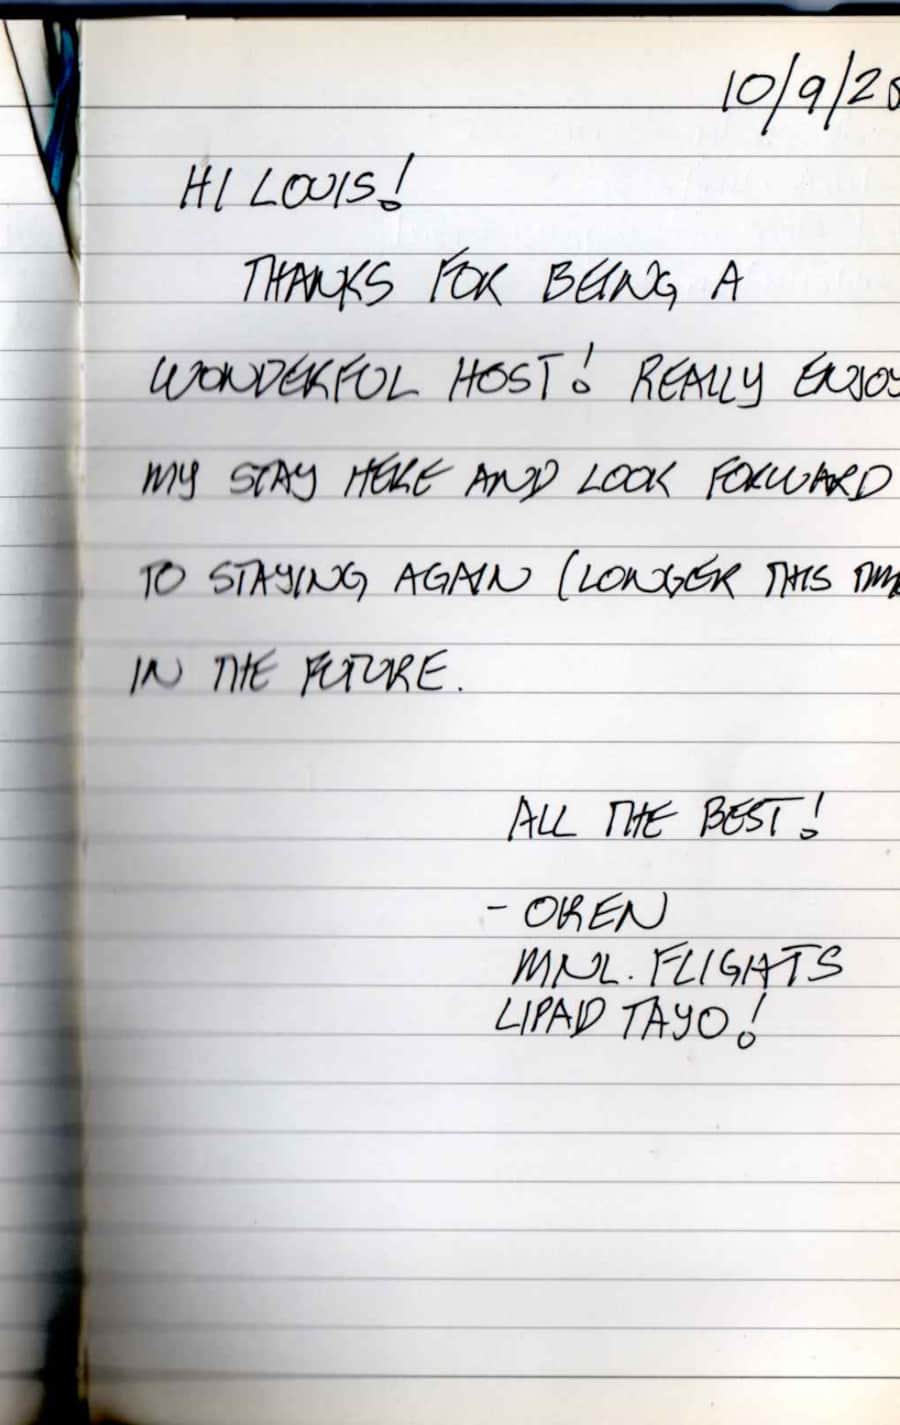 10/9/20
HI LOUIS!
THANKS FOR BEING A
WONDERFUL HOST! REALLY ENJOY
MY STAY HERE AND LOOK FORWARD
TO STAYING AGAIN (LONGER THIS TIME
IN THE FUTURE.
ALL THE BEST!
- OREN
MNL. FLIGHTS
LIPAD TAYO!